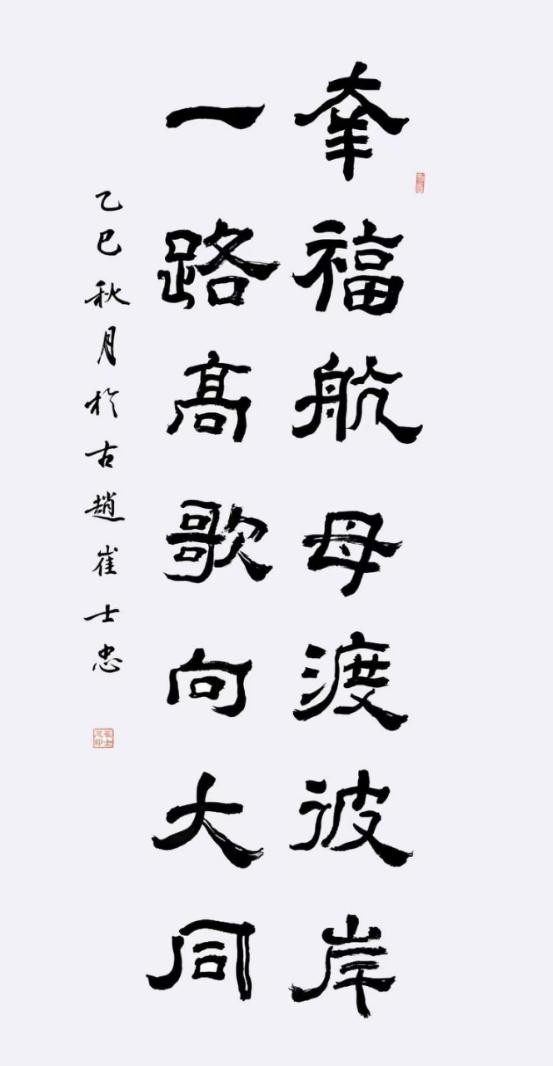 幸福航母渡彼岸
一路高歌向大同
乙巳秋月於古趙崔士忠